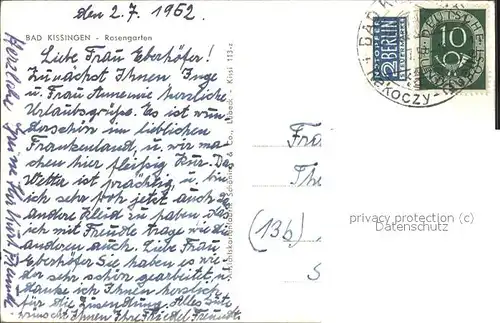 den 2.7.1962.
BAD KISSINGEN - Rosengarten
Liebe Frau Eberhöfer!
Zunächst Ihnen Inge
u. Frau Annemie herzliche
Urlaubsgrüße. Es ist wun
derschön im lieblichen
Frankenland u. wir ma
chen hier fleißig Kur. Das
Wetter ist prächtig, u. bin
ich sehr froh jetzt auch
andere Kleid zu haben, das
ich mit Freude trage wie die
anderen auch. Liebe Frau
Eberhöfer Sie haben es wie
der sehr schön gearbeitet u.
danke ich Ihnen herzlich
für die Zusendung. Alles Gute
wünscht Ihnen Ihre Friedel Freundt
Herzliche Grüße
Ansichtskartenfabrik Schöning & Co., Lübeck - Kissi 113-z
NOTOPFER
2 BERLIN
STEUERMARKE
DEUTSCHE
10
BAD K
KOCZY
Fra
Th
(13b)
S
privacy protection (c)
Datenschutz